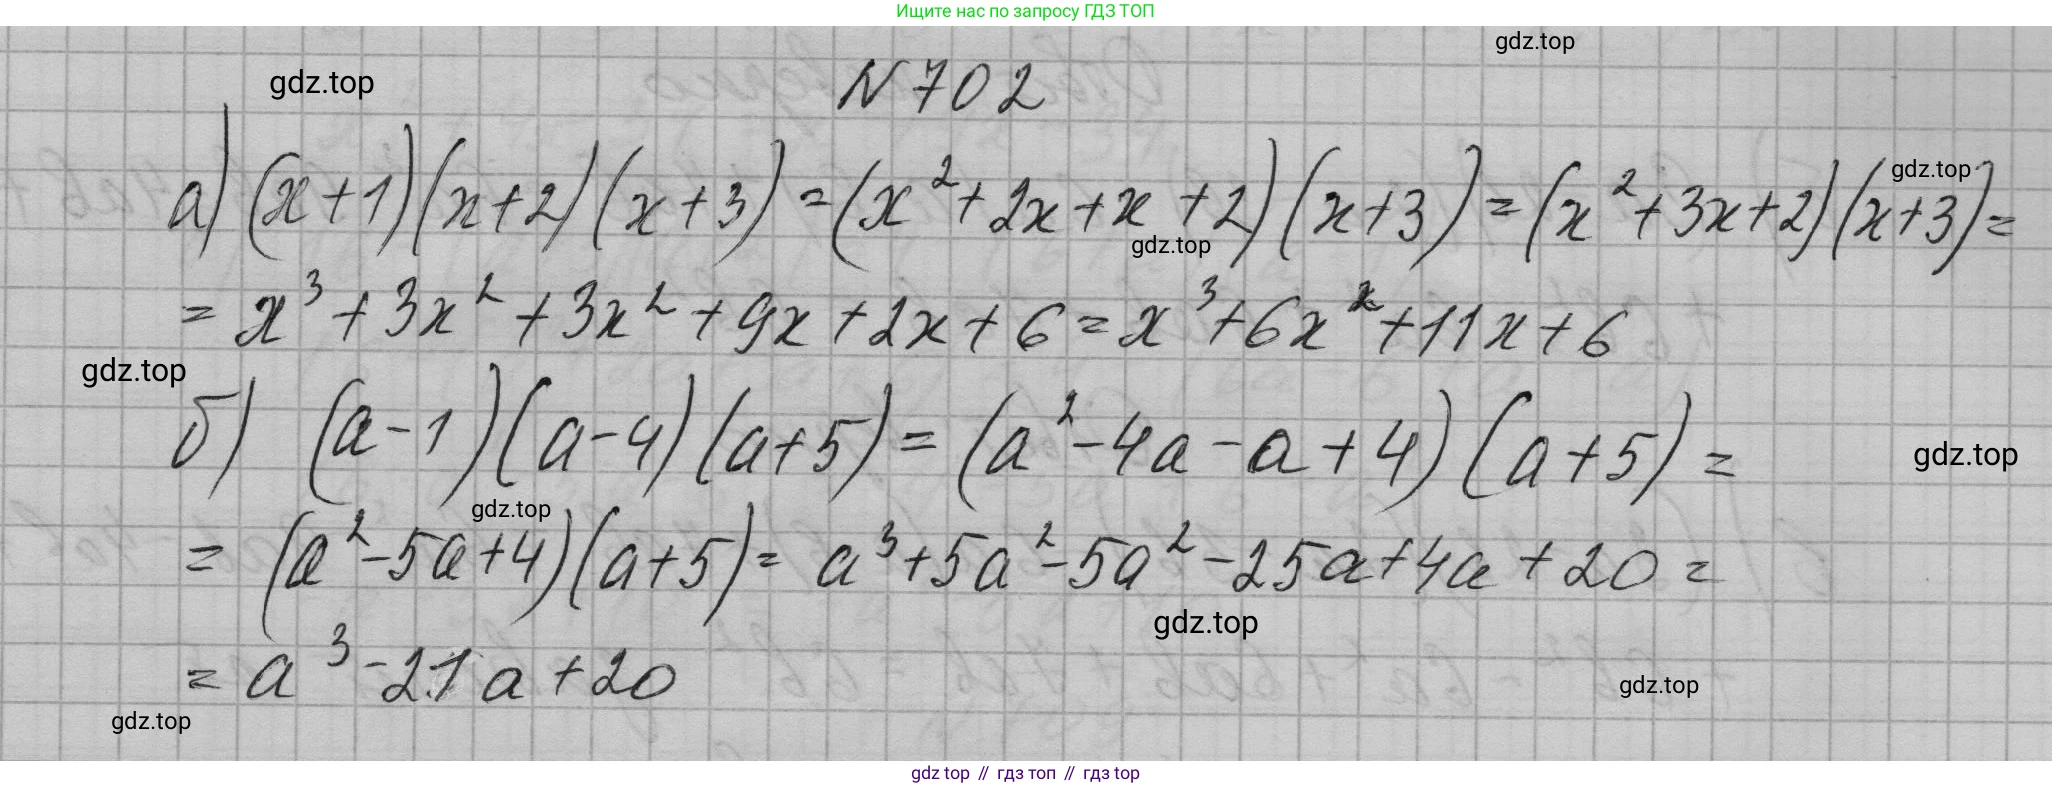 Ищите нас по запросу ГДЗ ТОП
gdz.top
gdz.top
N 702
а) (x+1)(x+2)(x+3)=(x²+2x+x+2)(x+3)=(x²+3x+2)(x+3)=
gdz.top
gdz.top
=x³+3x²+3x²+9x+2x+6=x³+6x²+11x+6
gdz.top
б) (a-1)(a-4)(a+5)=(a²-4a-a+4)(a+5)=
gdz.top
gdz.top
=(a²-5a+4)(a+5)=a³+5a²-5a²-25a+4a+20=
gdz.top
=a³-21a+20
gdz.top
gdz.top
gdz top // гдз топ // gdz top